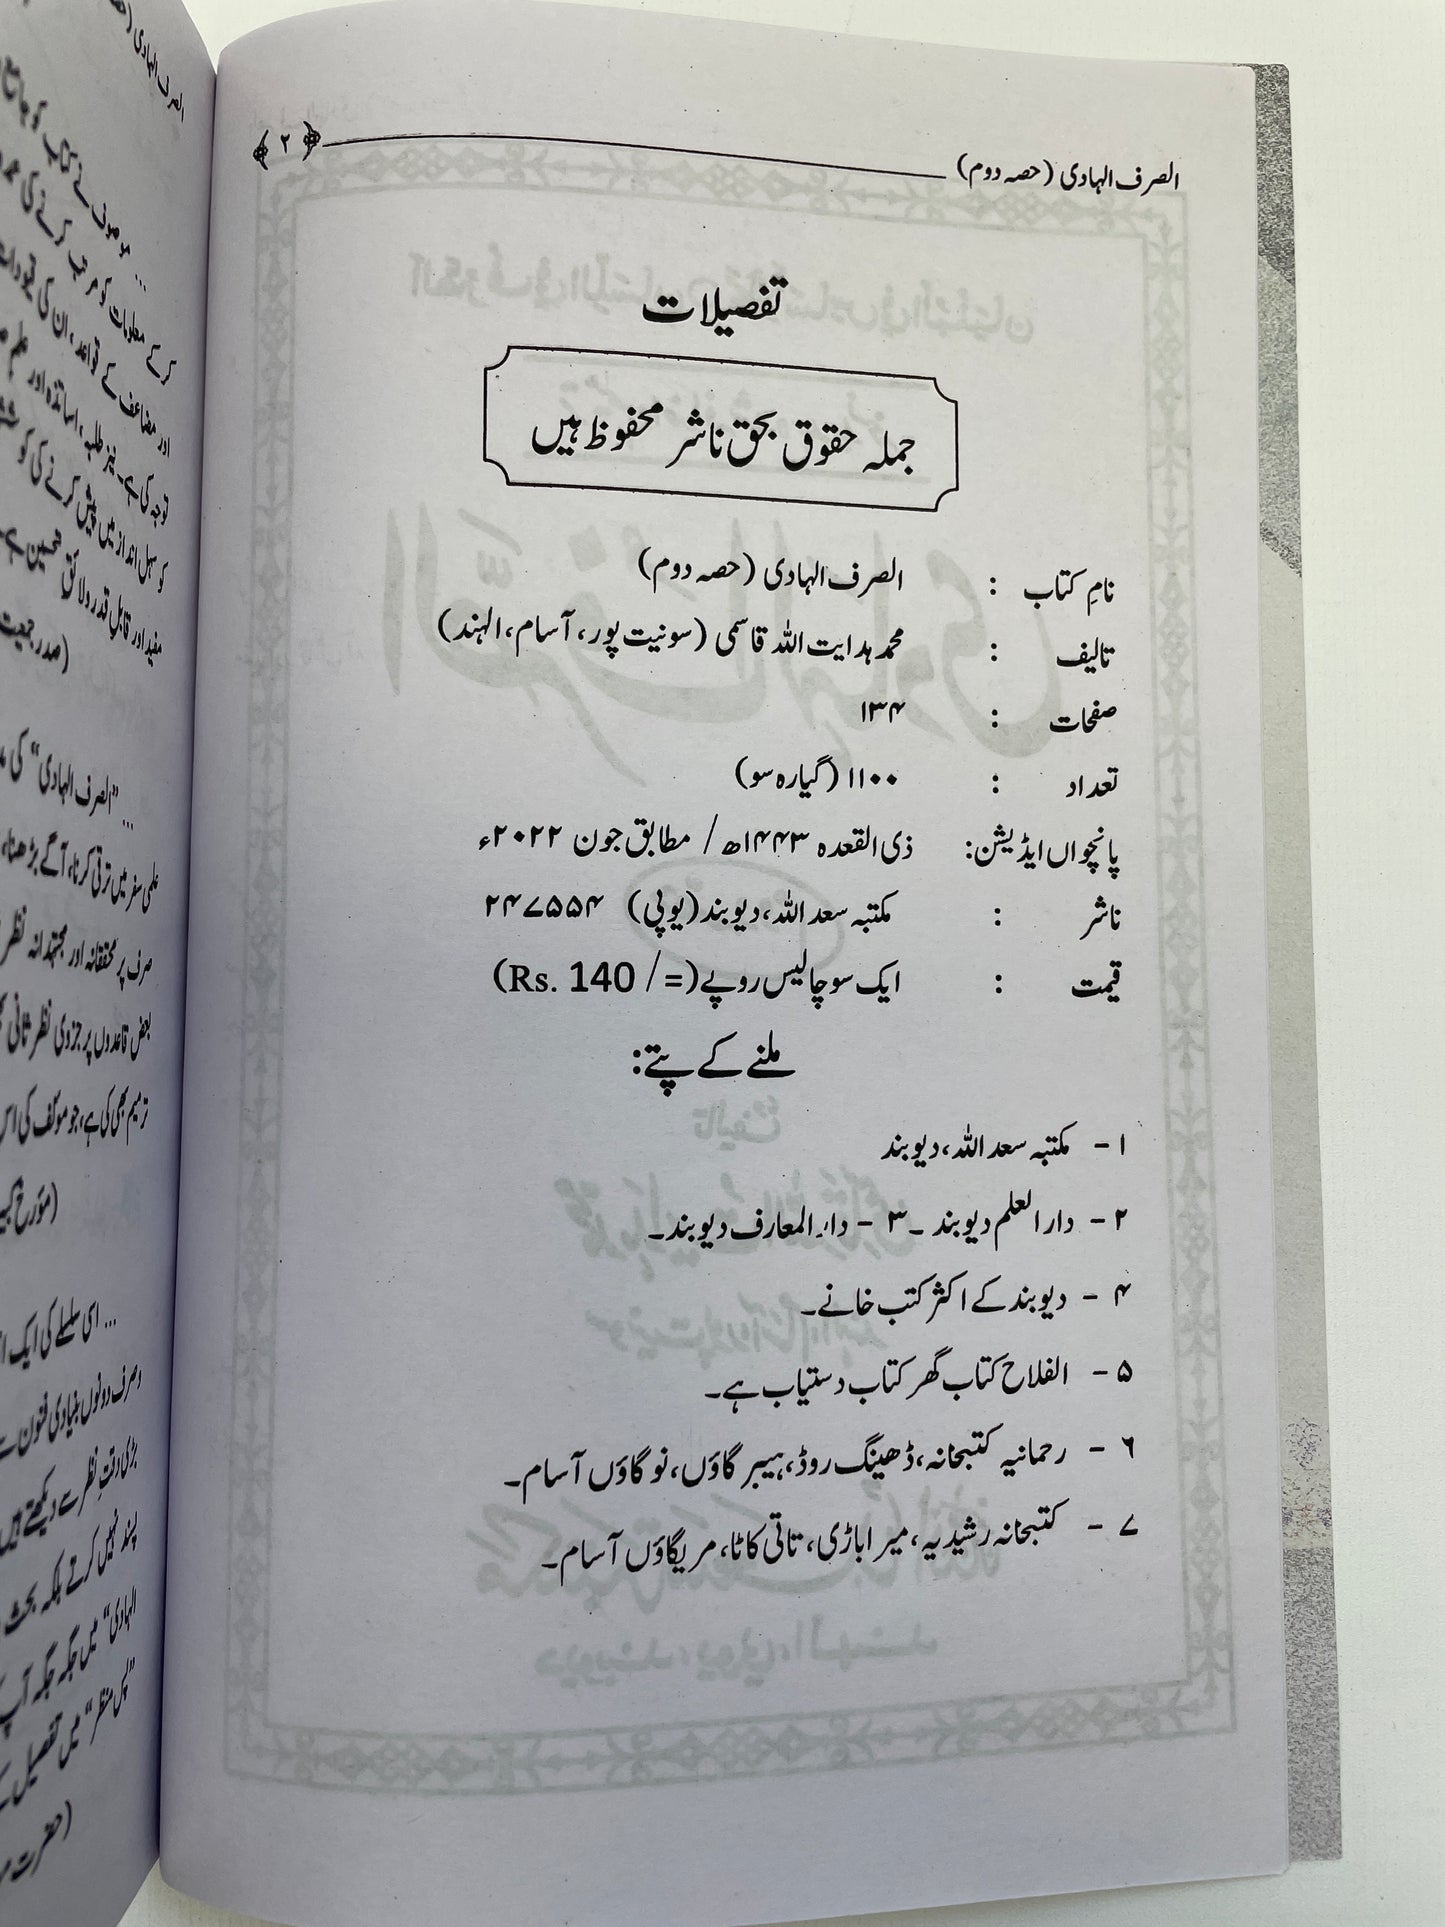 الصرف الہادی (حصہ دوم)
﴿ ۲ ﴾
تفصیلات
جملہ حقوق بحق ناشر محفوظ ہیں
نامِ کتاب : الصرف الہادی (حصہ دوم)
تالیف : محمد ہدایت اللہ قاسمی (سونیت پور، آسام، الہند)
صفحات : ۱۳۴
تعداد : ۱۱۰۰ (گیارہ سو)
پانچواں ایڈیشن: ذی القعدہ ۱۴۴۳ھ / مطابق جون ۲۰۲۲ء
ناشر : مکتبہ سعد اللہ، دیوبند (یوپی) ۲۴۷۵۵۴
قیمت : ایک سو چالیس روپے (Rs. 140 /=)
ملنے کے پتے:
۱ - مکتبہ سعد اللہ، دیوبند
۲ - دار العلم دیوبند ۔ ۳ - دار المعارف دیوبند۔
۴ - دیوبند کے اکثر کتب خانے۔
۵ - الفلاح کتاب گھر کتاب دستیاب ہے۔
۶ - رحمانیہ کتبخانہ، ڈھینگ روڈ، ہیبر گاؤں، نوگاؤں آسام۔
۷ - کتبخانہ رشیدیہ، میراباڑی، تاتی کاٹا، مریگاؤں آسام۔
الصرف الہادی
... موصوف نے کتاب کو
کر کے معلومات کو مرتب کرنے کی
اور مضاعف کے قواعد، ان کی قیودات
توجہ کی ہے۔ نیز طلبہ، اساتذہ اور علم
کو سہل انداز میں پیش کرنے کی
مفید اور قابلِ قدر ولائق تحسین ہے۔
(صدر جمعیت
... "الصرف الہادی" کی
علمی سفر میں ترقی کرنا، آگے بڑھنا،
صرف پر محققانہ اور مجتہدانہ نظر
بعض قاعدوں پر جزوی نظر ثانی
ترمیم بھی کی ہے، جو مؤلف کی اس
(مؤرخ
... اسی سلسلے کی ایک
وصرف دونوں بنیادی فنون
بڑی دقتِ نظر سے دیکھتے ہیں
پسند نہیں کرتے بلکہ بحث
الہادی" میں جگہ جگہ آپ
"پس منظر" میں تفصیل
(حضرت